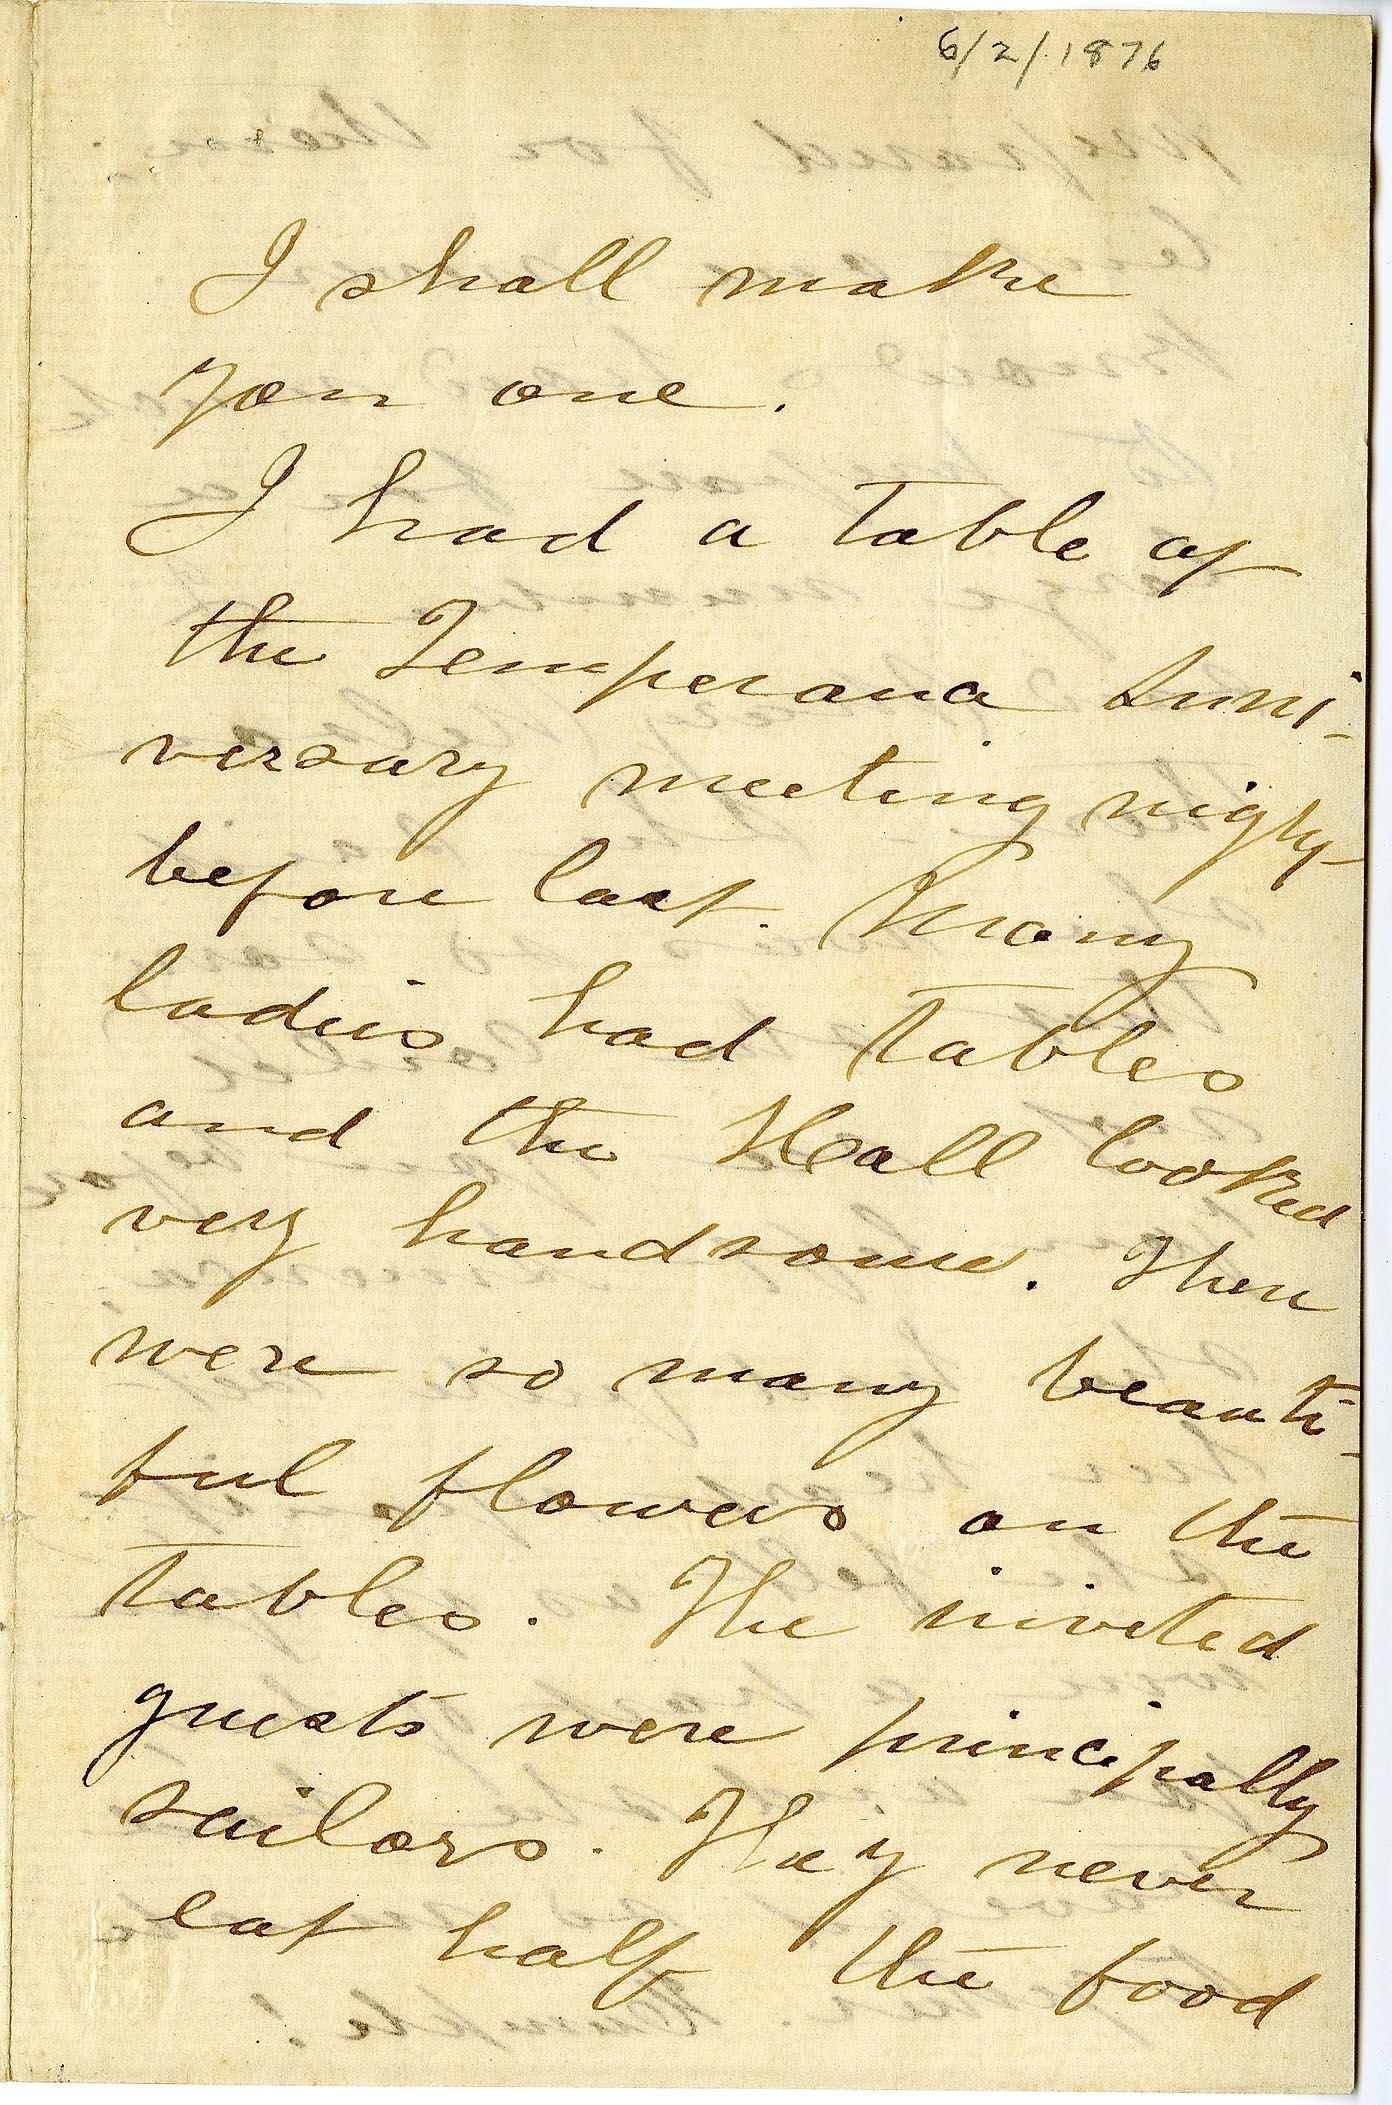 6/2/1876
I shall make
you one.
I had a table at
the Temperance Anni-
versary meeting night
before last. Many
ladies had tables
and the Hall looked
very handsome. There
were so many beauti-
ful flowers on the
tables. The invited
guests were principally
sailors. They never
eat half the food